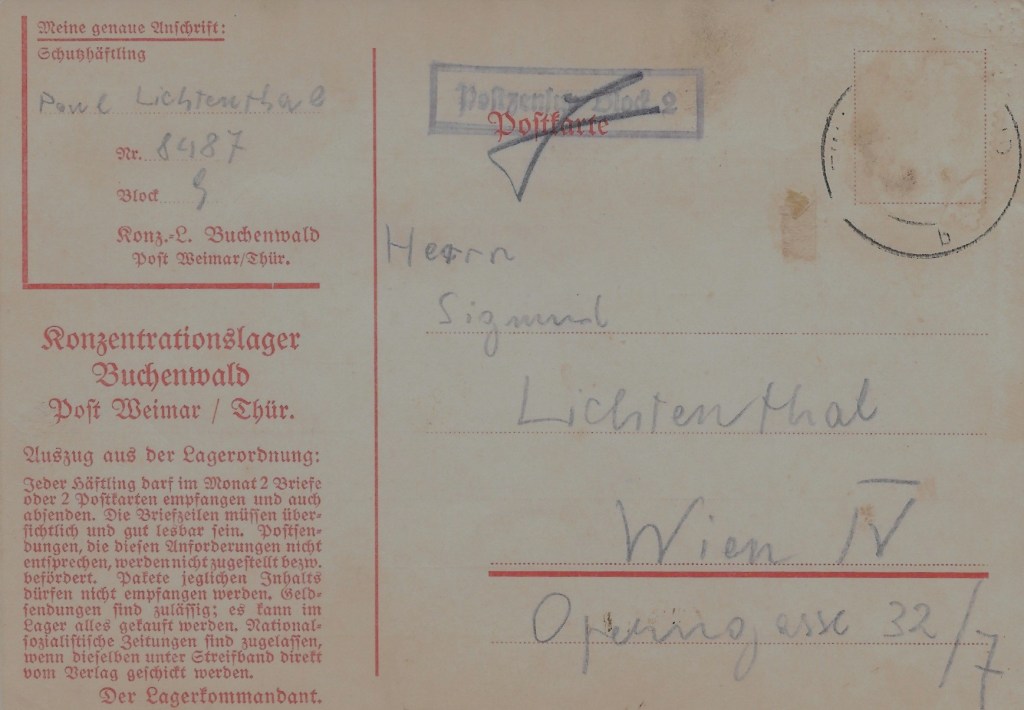 Meine genaue Anschrift:
Schutzhäftling
Paul Lichtenthal
Nr. 8487
Block 9
Konz.-L. Buchenwald
Post Weimar/Thür.
Konzentrationslager
Buchenwald
Post Weimar / Thür.
Auszug aus der Lagerordnung:
Jeder Häftling darf im Monat 2 Briefe
oder 2 Postkarten empfangen und auch
absenden. Die Briefzeilen müssen über-
sichtlich und gut lesbar sein. Postsen-
dungen, die diesen Anforderungen nicht
entsprechen, werden nicht zugestellt bezw.
befördert. Pakete jeglichen Inhalts
dürfen nicht empfangen werden. Geld-
sendungen sind zulässig; es kann im
Lager alles gekauft werden. National-
sozialistische Zeitungen sind zugelassen,
wenn dieselben unter Streifband direkt
vom Verlag geschickt werden.
Der Lagerkommandant.
Postzensur Block 2
Postkarte
b
Herrn
Sigmund
Lichtenthal
Wien IV
Operngasse 32/7